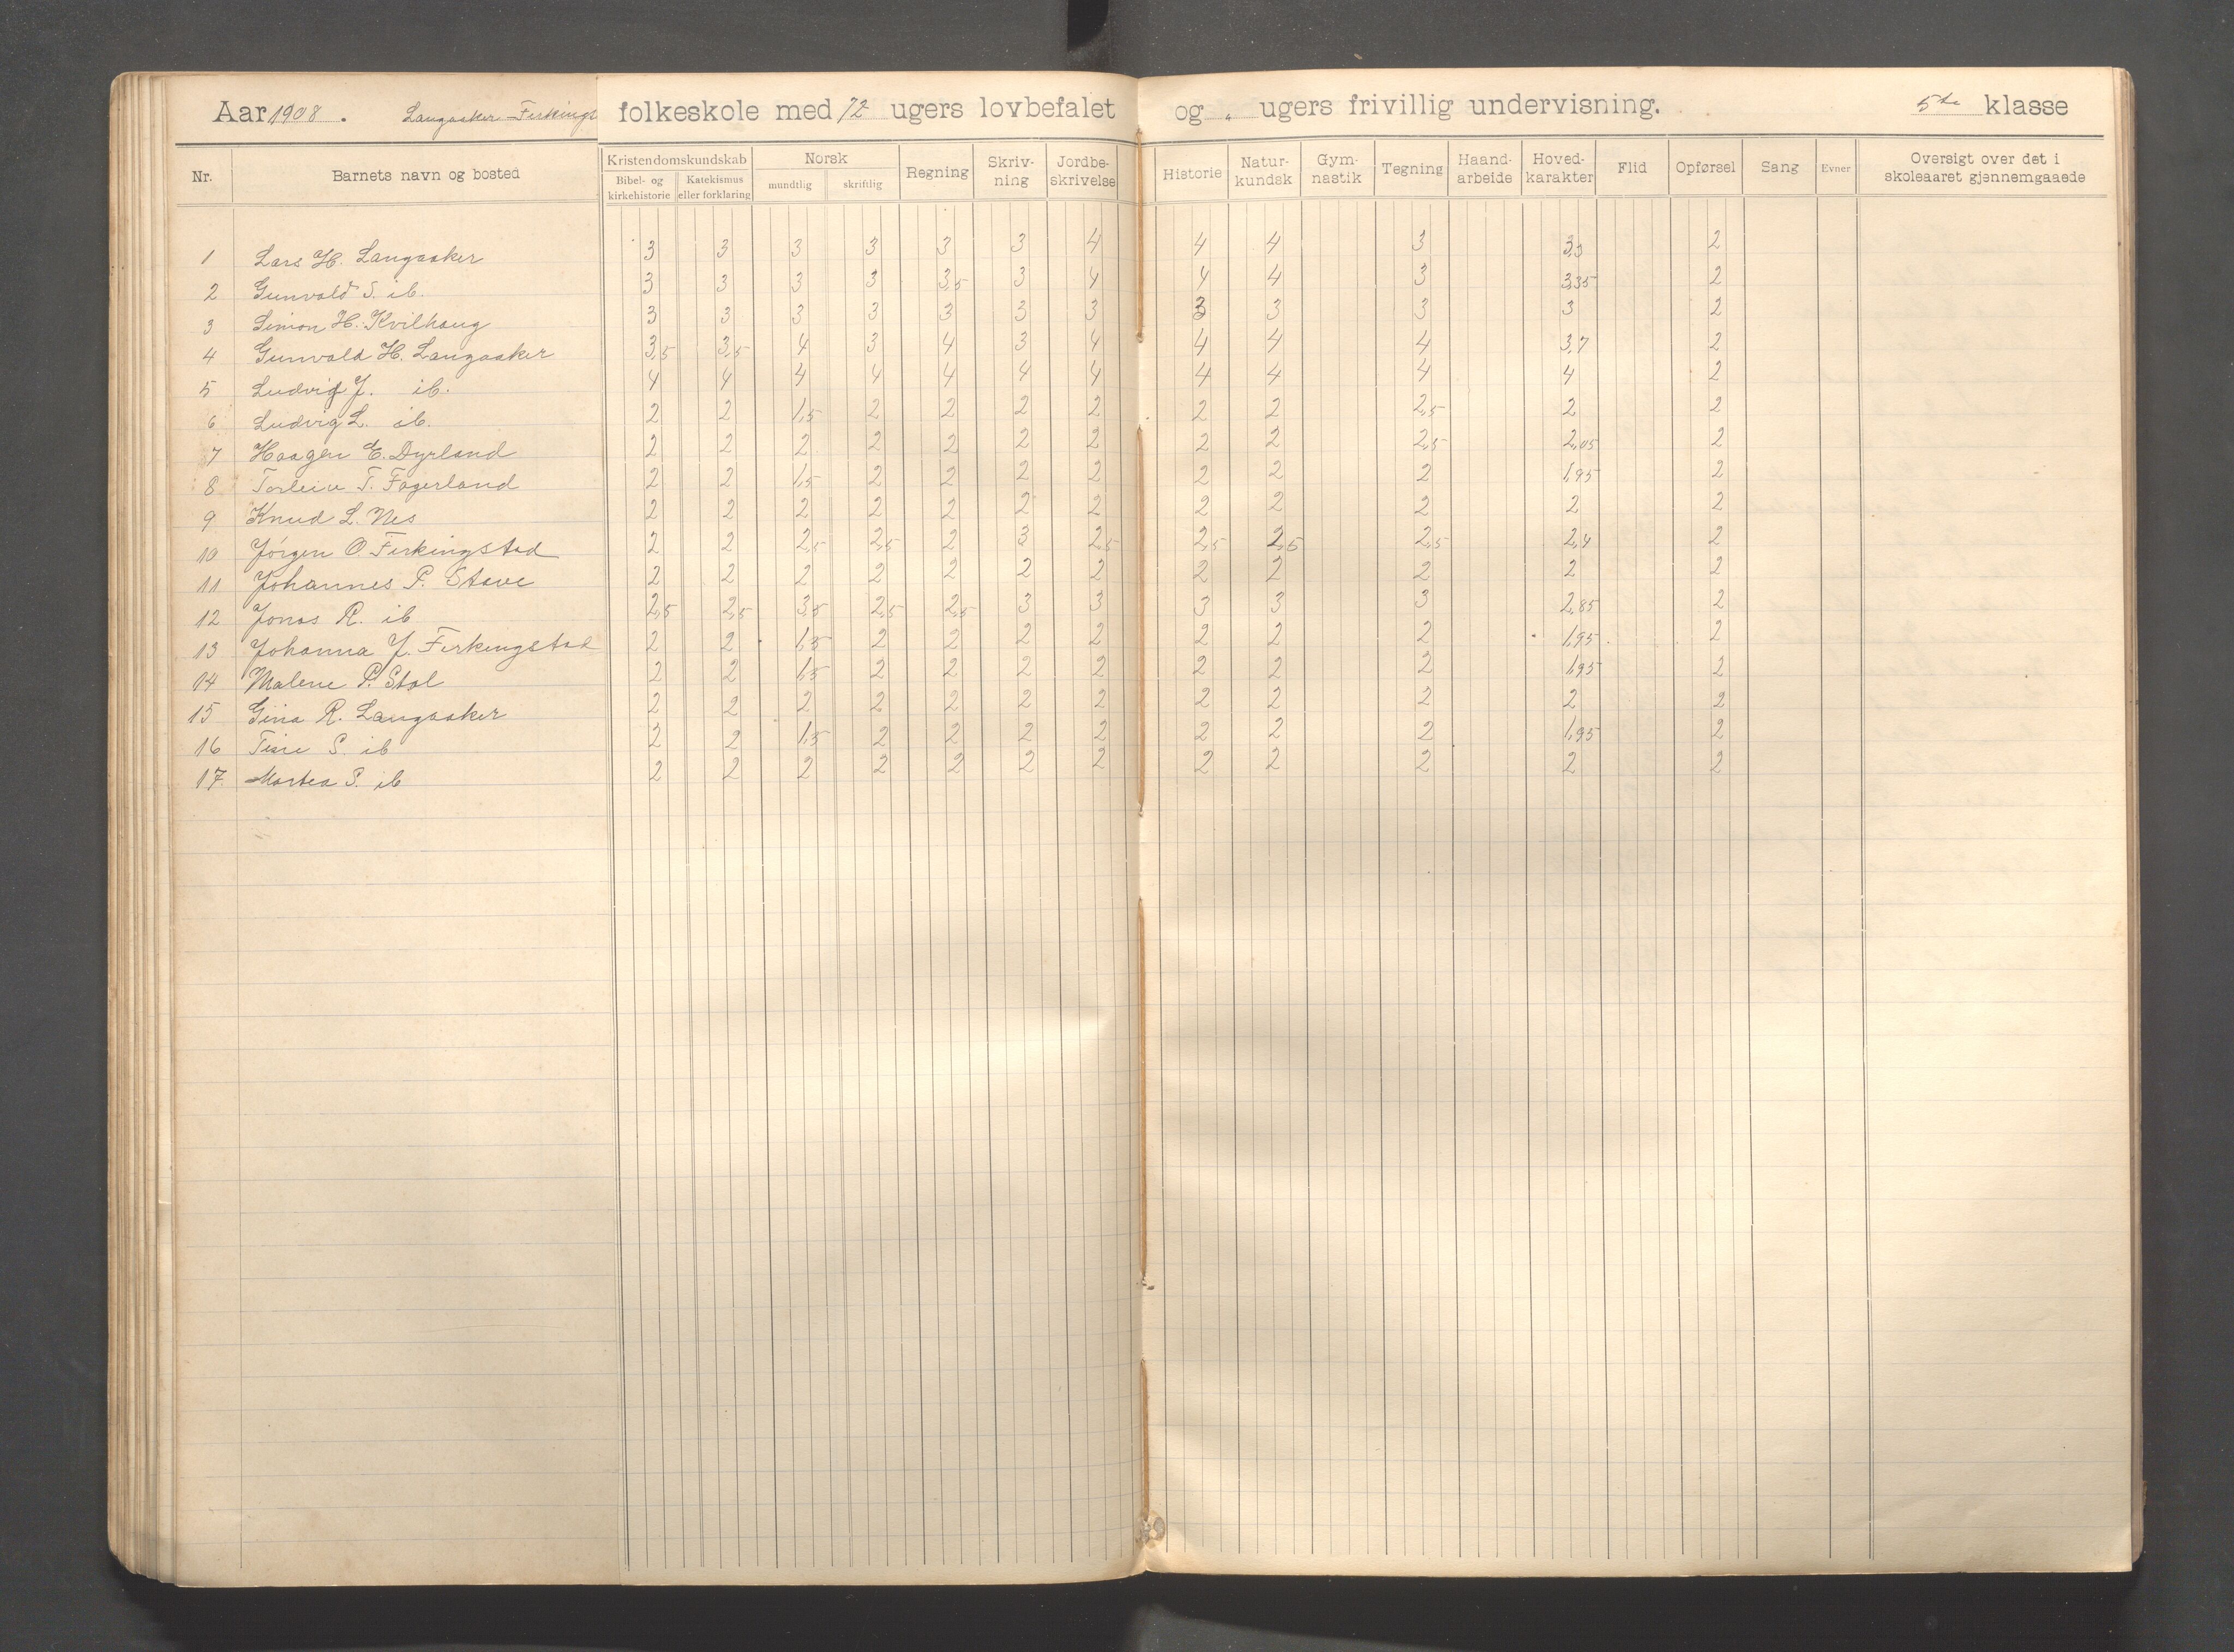 Aar 1908. Langaaker-Ferkingst folkeskole med 12 ugers lovbefalet og „ ugers frivillig undervisning. 5te klasse
Nr. Barnets navn og bosted Kristendomskundskab Bibel- og kirkehistorie Katekismus eller forklaring Norsk mundtlig skriftlig Regning Skriv-ning Jordbe-skrivelse Historie Natur-kundsk Gym-nastik Tegning Haand-arbeide Hoved-karakter Flid Opførsel Sang Evner Oversigt over det i skoleaaret gjennemgaaede
1 Lars H. Langaaker 3 3 3 3 3 3 4 4 4 3 3,3 2
2 Gunvald S. ib. 3 3 3 3 3,5 3 4 4 4 3 3,35 2
3 Simon H. Kvilhaug 3 3 3 3 3 3 3 3 3 3 3 2
4 Gunvald H. Langaaker 3,5 3,5 4 3 4 3 4 4 4 4 3,7 2
5 Ludvig J. ib. 4 4 4 4 4 4 4 4 4 4 4 2
6 Ludvig L. ib. 2 2 1,5 2 2 2 2 2 2 2,5 2 2
7 Haagen E. Dyrland 2 2 2 2 2 2 2 2 2 2,5 2,05 2
8 Torleiv T. Fagerland 2 2 1,5 2 2 2 2 2 2 2 1,95 2
9 Knud L. Nes 2 2 2 2 2 2 2 2 2 2 2 2
10 Jørgen O. Ferkingstad 2 2 2,5 2,5 2 3 2,5 2,5 2,5 2,5 2,4 2
11 Johannes P. Stave 2 2 2 2 2 2 2 2 2 2 2 2
12 Jonas R. ib 2,5 2,5 3,5 2,5 2,5 3 3 3 3 3 2,85 2
13 Johanna J. Ferkingstad 2 2 1,5 2 2 2 2 2 2 2 1,95 2
14 Malene P. Stol 2 2 1,5 2 2 2 2 2 2 2 1,95 2
15 Gina R. Langaaker 2 2 2 2 2 2 2 2 2 2 2 2
16 S. ib 2 2 1,5 2 2 2 2 2 2 2 1,95 2
17. Martea S. ib 2 2 2 2 2 2 2 2 2 2 2 2